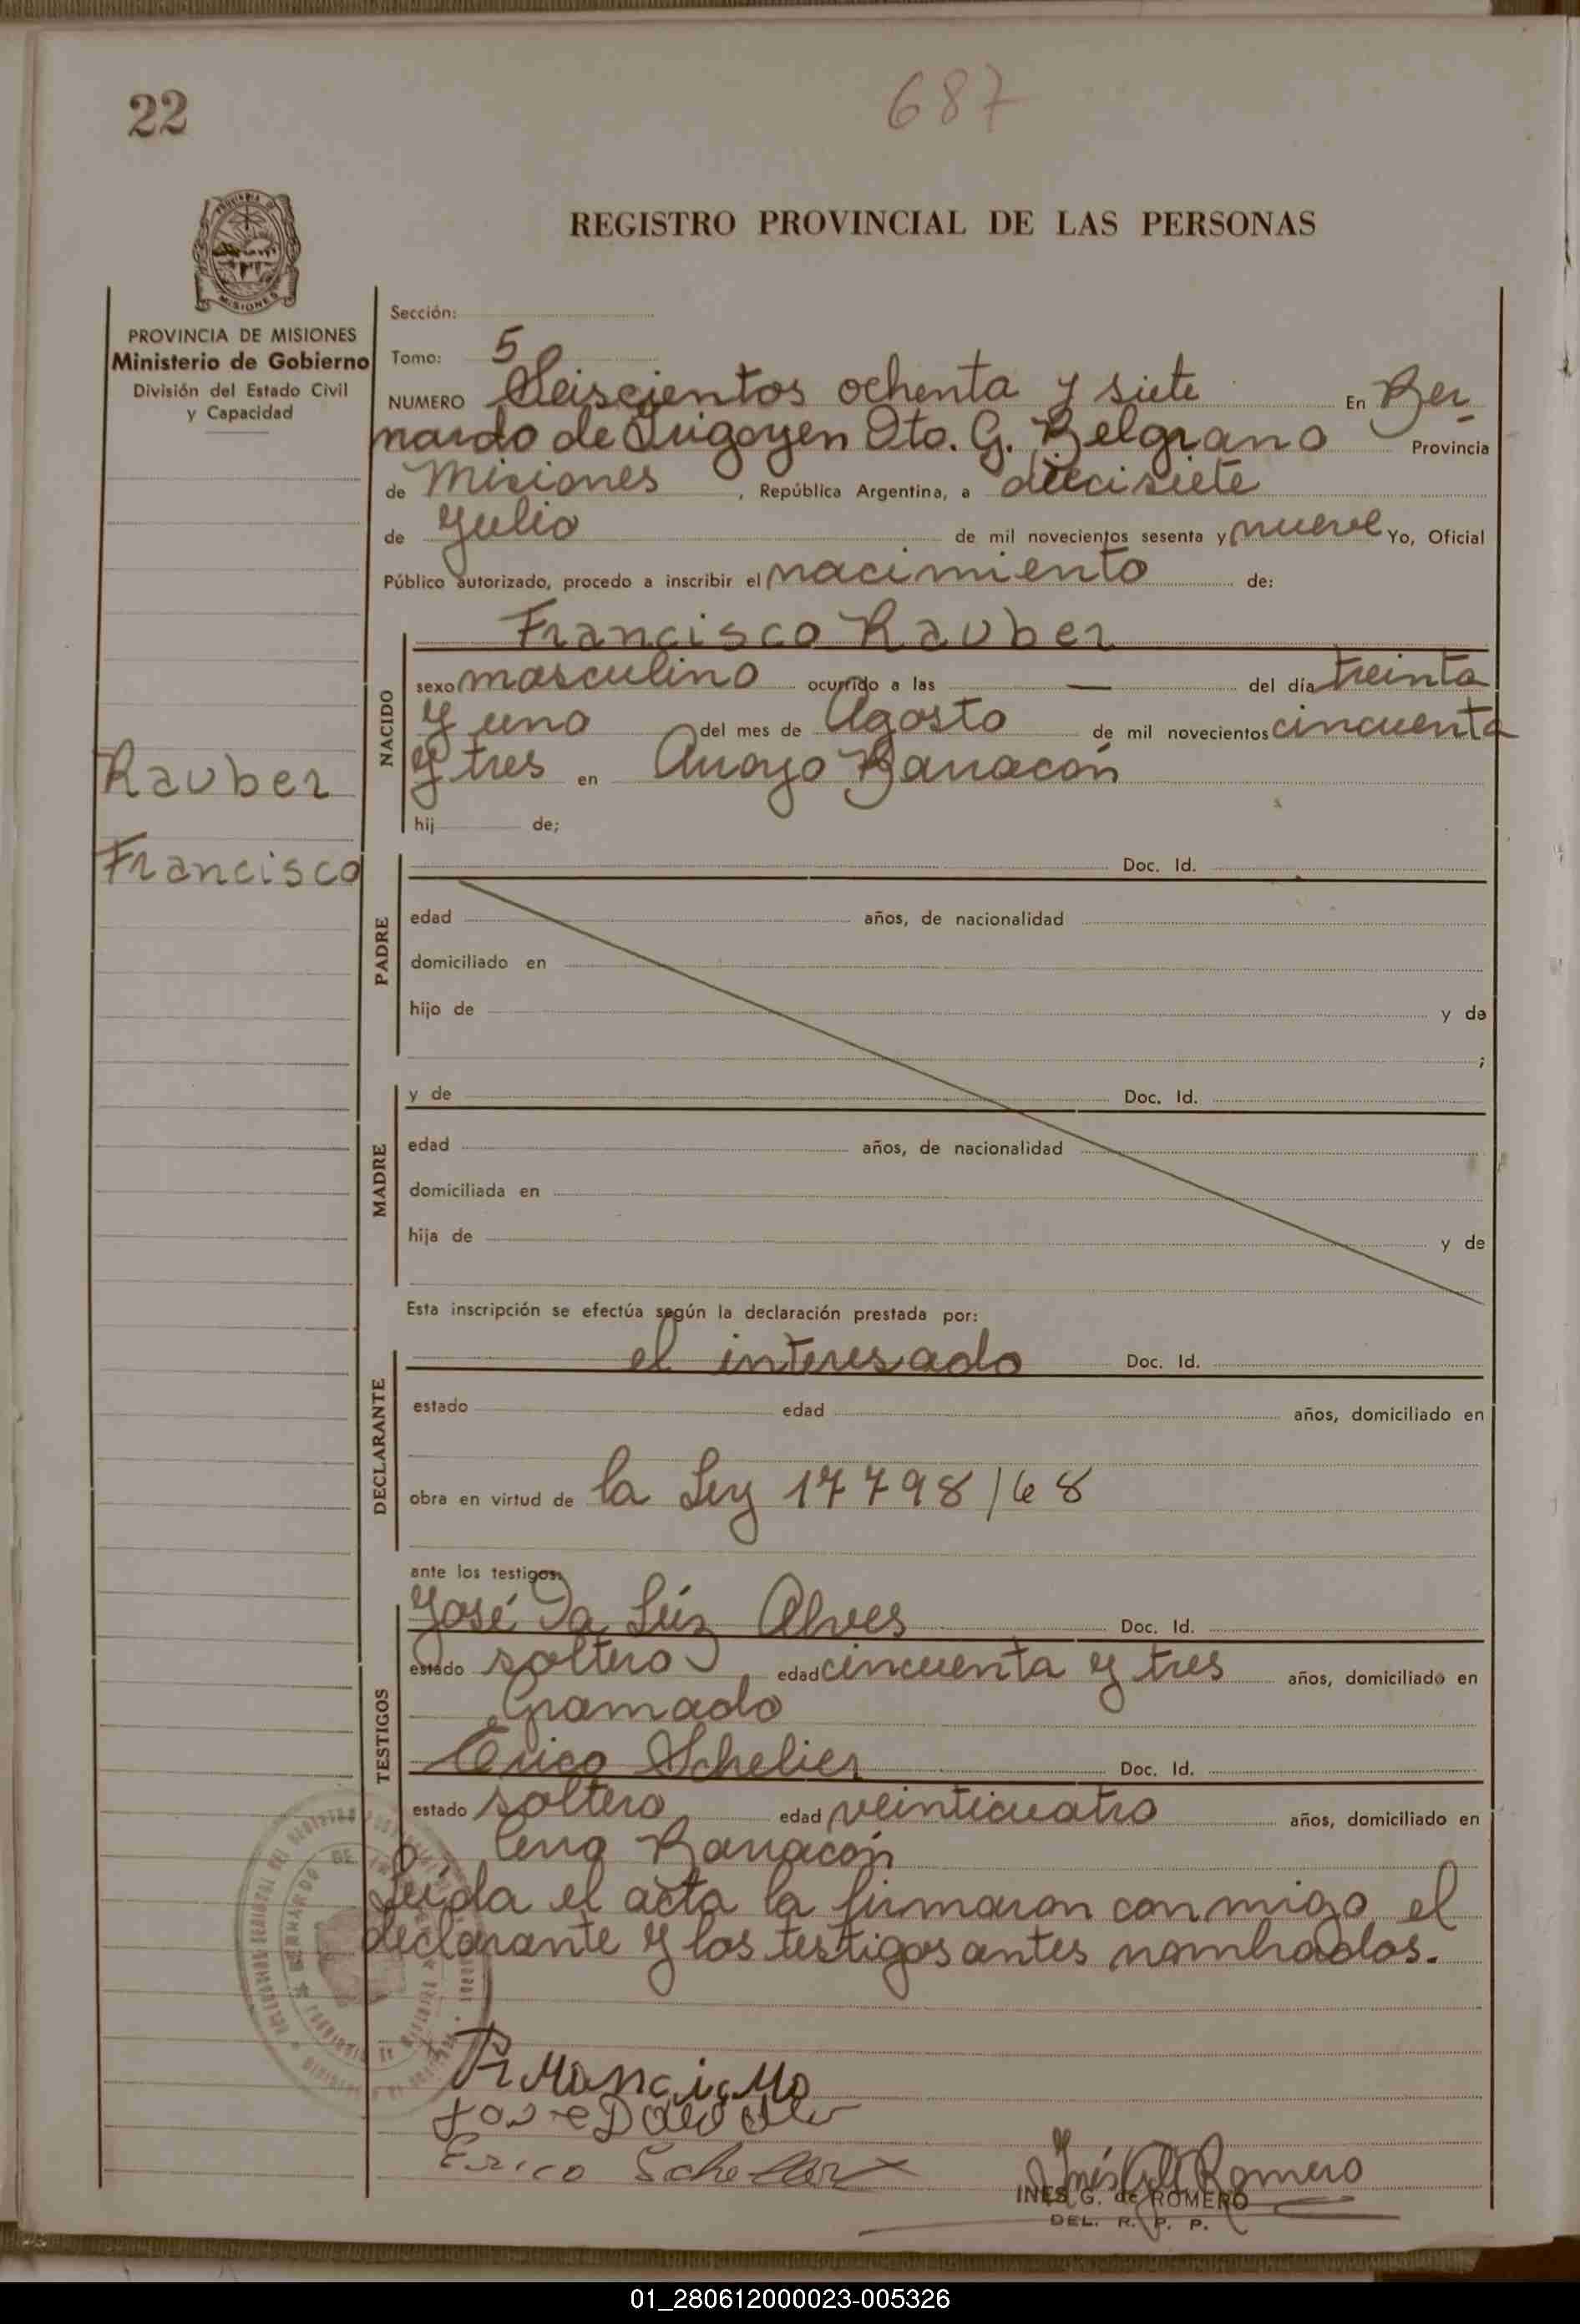 22
687
REGISTRO PROVINCIAL DE LAS PERSONAS
MISIONES
PROVINCIA DE MISIONES
Ministerio de Gobierno
División del Estado Civil
y Capacidad
Sección:
Tomo: 5
NUMERO Seiscientos ochenta y siete En Ber-
nardo de Irigoyen Dto. G. Belgrano Provincia
de Misiones, República Argentina, a diecisiete
de Julio de mil novecientos sesenta y nueve Yo, Oficial
Público autorizado, procedo a inscribir el nacimiento de:
NACIDO
Francisco Rauber
sexo masculino ocurrido a las — del día treinta
y uno del mes de Agosto de mil novecientos cincuenta
y tres en Arroyo Barracón
hij de;
Rauber
Francisco
PADRE
Doc. Id.
edad años, de nacionalidad
domiciliado en
hijo de y de
;
MADRE
y de Doc. Id.
edad años, de nacionalidad
domiciliada en
hija de y de
Esta inscripción se efectúa según la declaración prestada por:
DECLARANTE
el interesado Doc. Id.
estado edad años, domiciliado en
obra en virtud de la Ley 17798/68
ante los testigos:
TESTIGOS
José Da Lúz Alves Doc. Id.
estado soltero edad cincuenta y tres años, domiciliado en
Gramado
Erico Schelier Doc. Id.
estado soltero edad veinticuatro años, domiciliado en
Barracón
Leida el acta la firmaron conmigo el
declarante y los testigos antes nombrados.
Erico
Inés G. de Romero
INES G. de ROMERO
DEL. R. P. P.
01_280612000023-005326